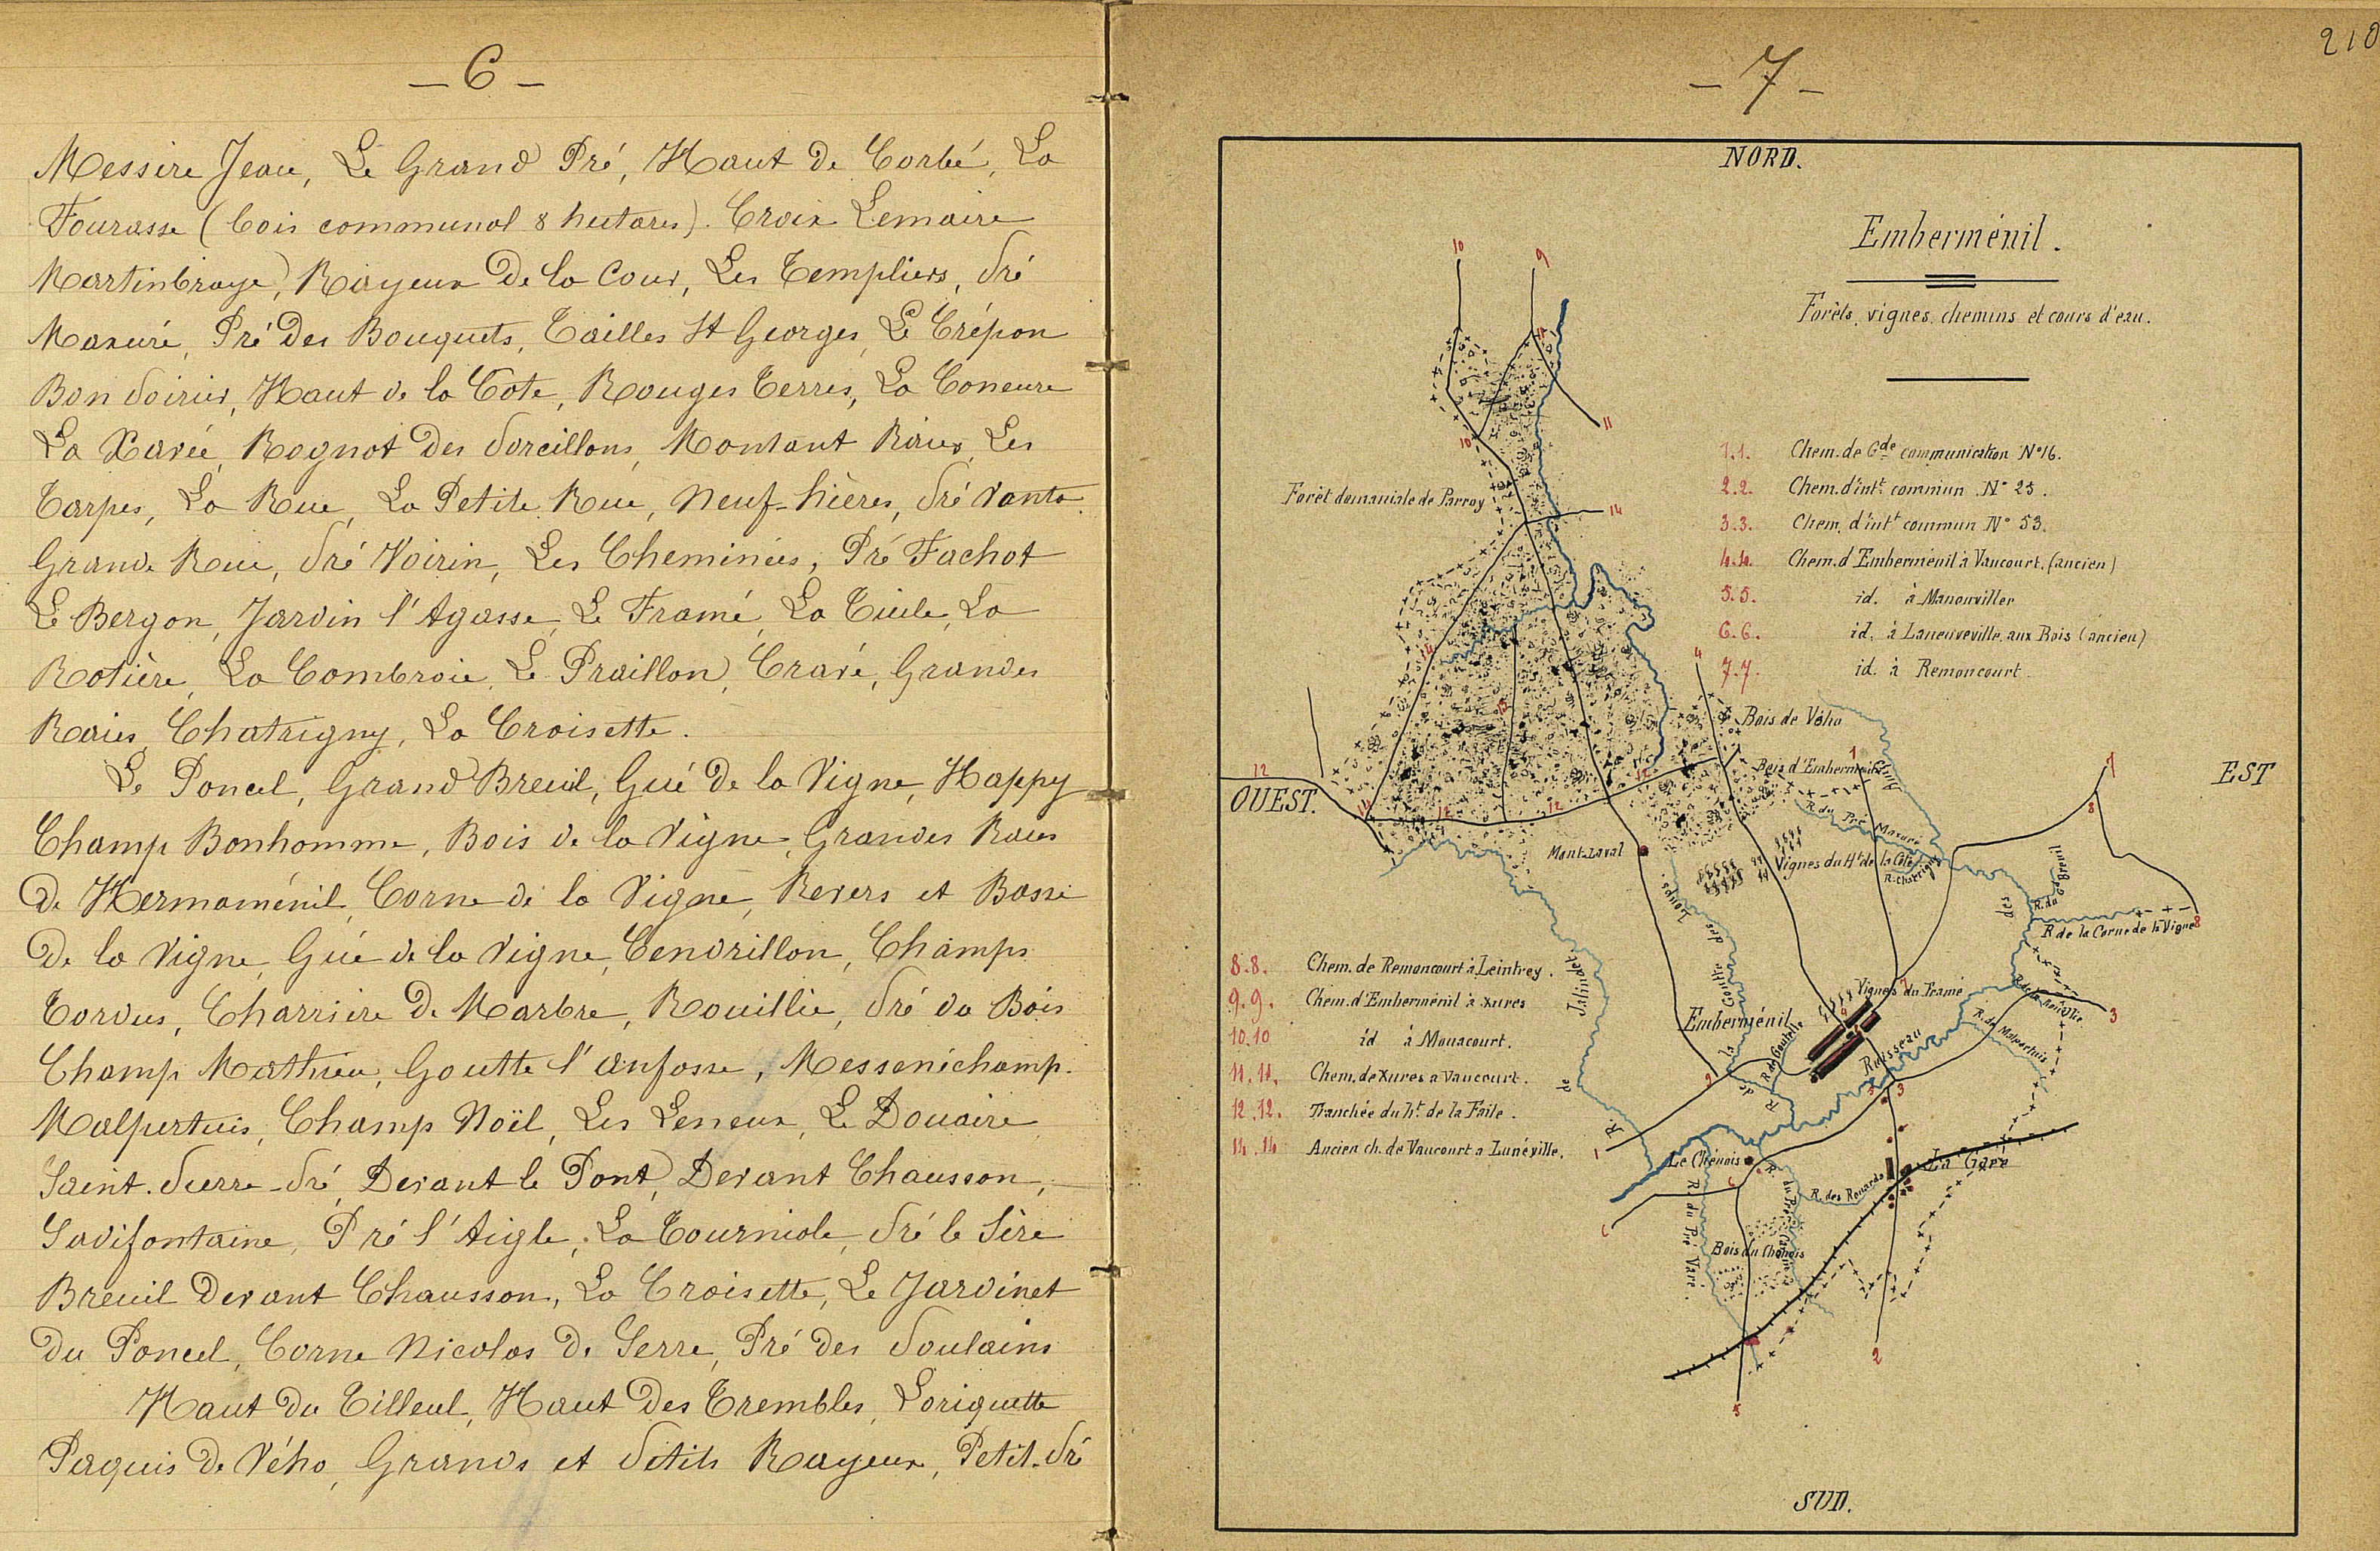 — 6 —
Messire Jean, Le Grand Pré, Haut de Corbé, La
Fourasse (bois communal 8 hectares). Croix Lemaire
Martinbraye, Rayeux de la Cour, Les Templiers, Pré
Maxuré, Pré des Bouquets, Tailles St Georges, Le Crépon
Bon Poirier, Haut de la Cote, Rouges Terres, La Coneure
La Xavée, Rognot des Porcillons, Montant Raies, Les
Tarpes, La Rue, La Petite Rue, Neuf-hières, Pré Vanto
Grande Rue, Pré Voirin, Les Cheminées, Pré Fachot
Le Bergon, Jardin l'Agasse, Le Framé, La Tiele, La
Rotière, La Combroie, Le Praillon, Cravé, Grandes
Raies, Chatrigny, La Croisette.
Le Poncel, Grand Breuil, Gué de la Vigne, Happy
Champ Bonhomme, Bois de la Vigne, Grandes Raies
de Hermaménil, Corne de la Vigne, Revers et Basse
de la Vigne, Gué de la Vigne, Cendrillon, Champs
Tordus, Charrière de Marbre, Rouillie, Pré du Bois
Champ Mathieu, Goutte l'anfosse, Messenichamp.
Malpertuis, Champ Noël, Les Leneux, Le Douaire
Saint-Pierre-Pré, Devant le Pont, Devant Chausson,
Savifontaine, Pré l'Aigle, La Tourniole, Pré le Sère
Breuil devant Chausson, La Croisette, Le Jardinet
du Poncel, Corne Nicolas de Serre, Pré des Poulains
Haut du Tilleul, Haut des Trembles, Loriquette
Paquis de Vého, Grands et Petits Rayeux, Petit-Pré
— 7 —
218
NORD.
Emberménil.
Forêts, vignes, chemins et cours d'eau.
1.1. Chem. de Gde communication N°16.
2.2. Chem. d'intt commun N° 25.
3.3. Chem. d'intt commun N° 53.
4.4. Chem. d'Emberménil à Vaucourt. (ancien)
5.5. id. à Manonviller
6.6. id. à Laneuveville aux Bois (ancien)
7.7. id. à Remoncourt
Forêt domaniale de Parroy
Bois de Vého
Bois d'Emberménil
OUEST.
EST
R. du Pré Maxuré
Mont-Laval
Vignes du Ht de la Côte
R. Chatrigny
R. du Gd Breuil
R. de la Corne de la Vigne
8.8. Chem. de Remoncourt à Leintrey.
9.9. Chem. d'Emberménil à Xures
10.10 id à Mouacourt.
11.11. Chem. de Xures à Vaucourt.
12.12. Tranchée du ht. de la Faite.
14.14 Ancien ch. de Vaucourt à Lunéville.
R. de Jalindet
R. de la Goutte des Loups.
Vignes du Framé
Emberménil
R. de Goutelle
Ruisseau des
R. de la Rouillie
R. de Malpertuis
Le Chênois
La Gare
R. des Renards
R. du Pré Varé.
Bois du Chênois
SUD.